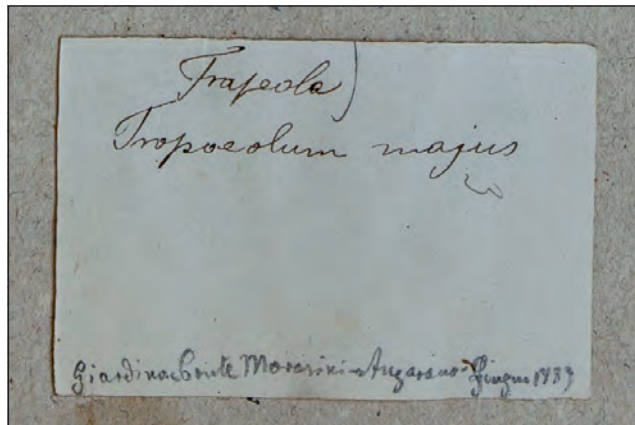 Trapeola
Tropoeolum majus
Giardino Conte Morosini - Angarano - Giugno 1889